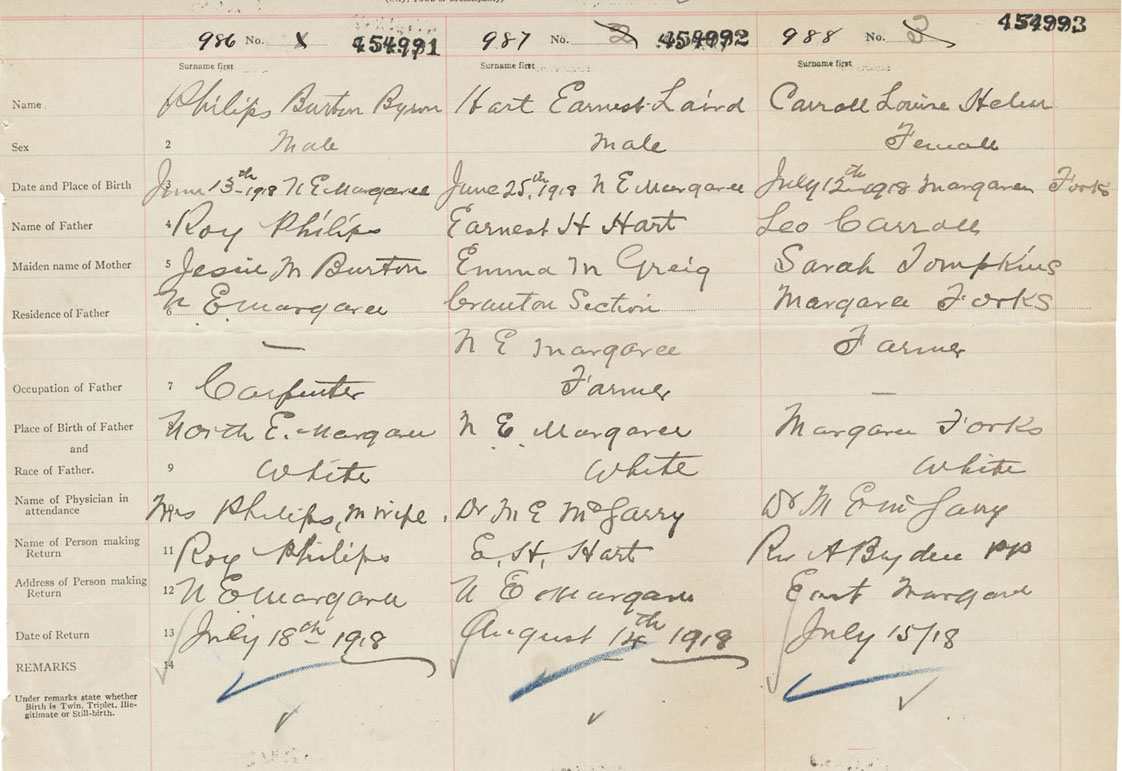 986 No. 1 454991 987 No. 2 454992 988 No. 3 454993
Surname first Surname first Surname first
Name Philips Burton Byron Hart Earnest Laird Carroll Louise Helen
Sex 2 Male Male Female
Date and Place of Birth 3 June 13th 1918 N E Margaree June 25th, 1918 N E Margaree July 12th 1918 Margaree Forks
Name of Father 4 Roy Philips Earnest H Hart Leo Carroll
Maiden name of Mother 5 Jessie M Burton Emma M Greig Sarah Tompkins
Residence of Father 6 N E Margaree Cranton Section Margaree Forks
— N E Margaree Farmer
Occupation of Father 7 Carpenter Farmer —
Place of Birth of Father North E. Margaree N E Margaree Margaree Forks
and
Race of Father. 9 White White White
Name of Physician in attendance Mrs Philips, M Wife. Dr M E McGarry Dr M E McGarry
Name of Person making Return 11 Roy Philips E. H. Hart Rev A Bryden PP
Address of Person making Return 12 N E Margaree N E Margaree East Margaree
Date of Return 13 July 18th 1918 August 14th 1918 July 15/18
REMARKS 14
Under remarks state whether
Birth is Twin, Triplet, Ille-
gitimate or Still-birth.